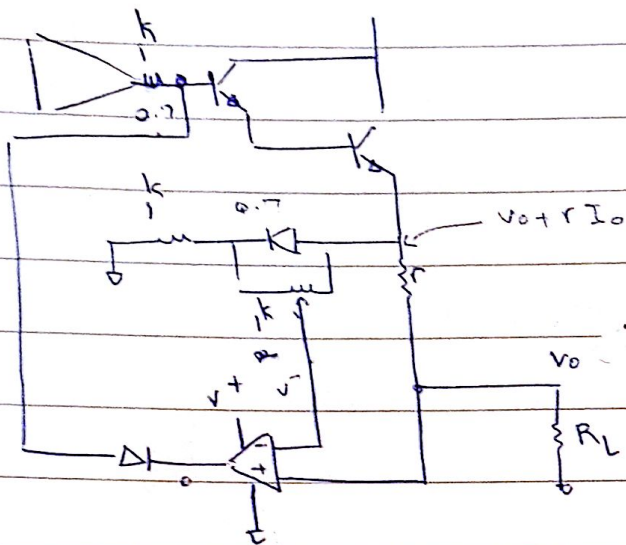 k
1
0.7
k
1
0.7
Vo + r Io
r
1k
V+
V-
Vo
RL
-
+